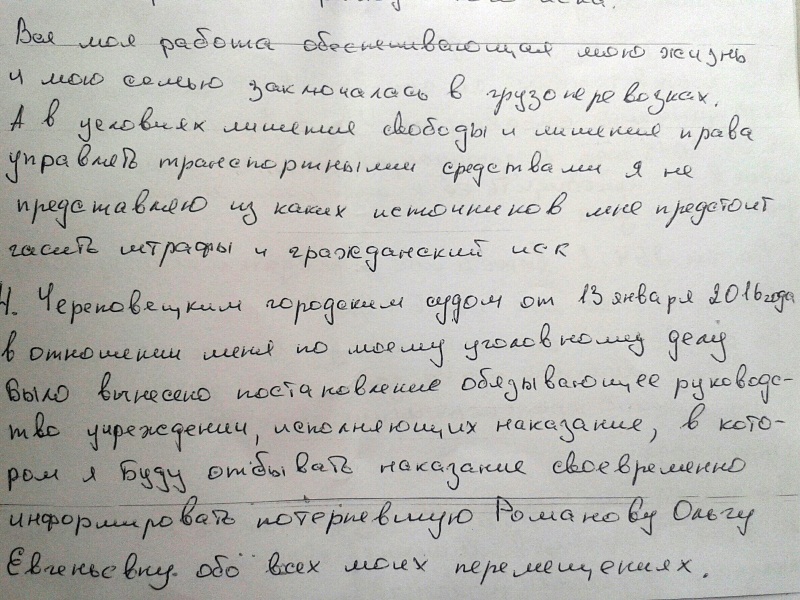 Вся моя работа обеспечивающая мою жизнь
и мою семью заключалась в грузоперевозках.
А в условиях лишения свободы и лишения права
управлять транспортными средствами я не
представляю из каких источников мне предстоит
гасить штрафы и гражданский иск
4. Череповецким городским судом от 13 января 2016 года
в отношении меня по моему уголовному делу
было вынесено постановление обязывающее руководс-
тво учреждении, исполняющих наказание, в кото-
ром я буду отбывать наказание своевременно
информировать потерпевшую Романову Ольгу
Евгеньевну обо всех моих перемещениях.